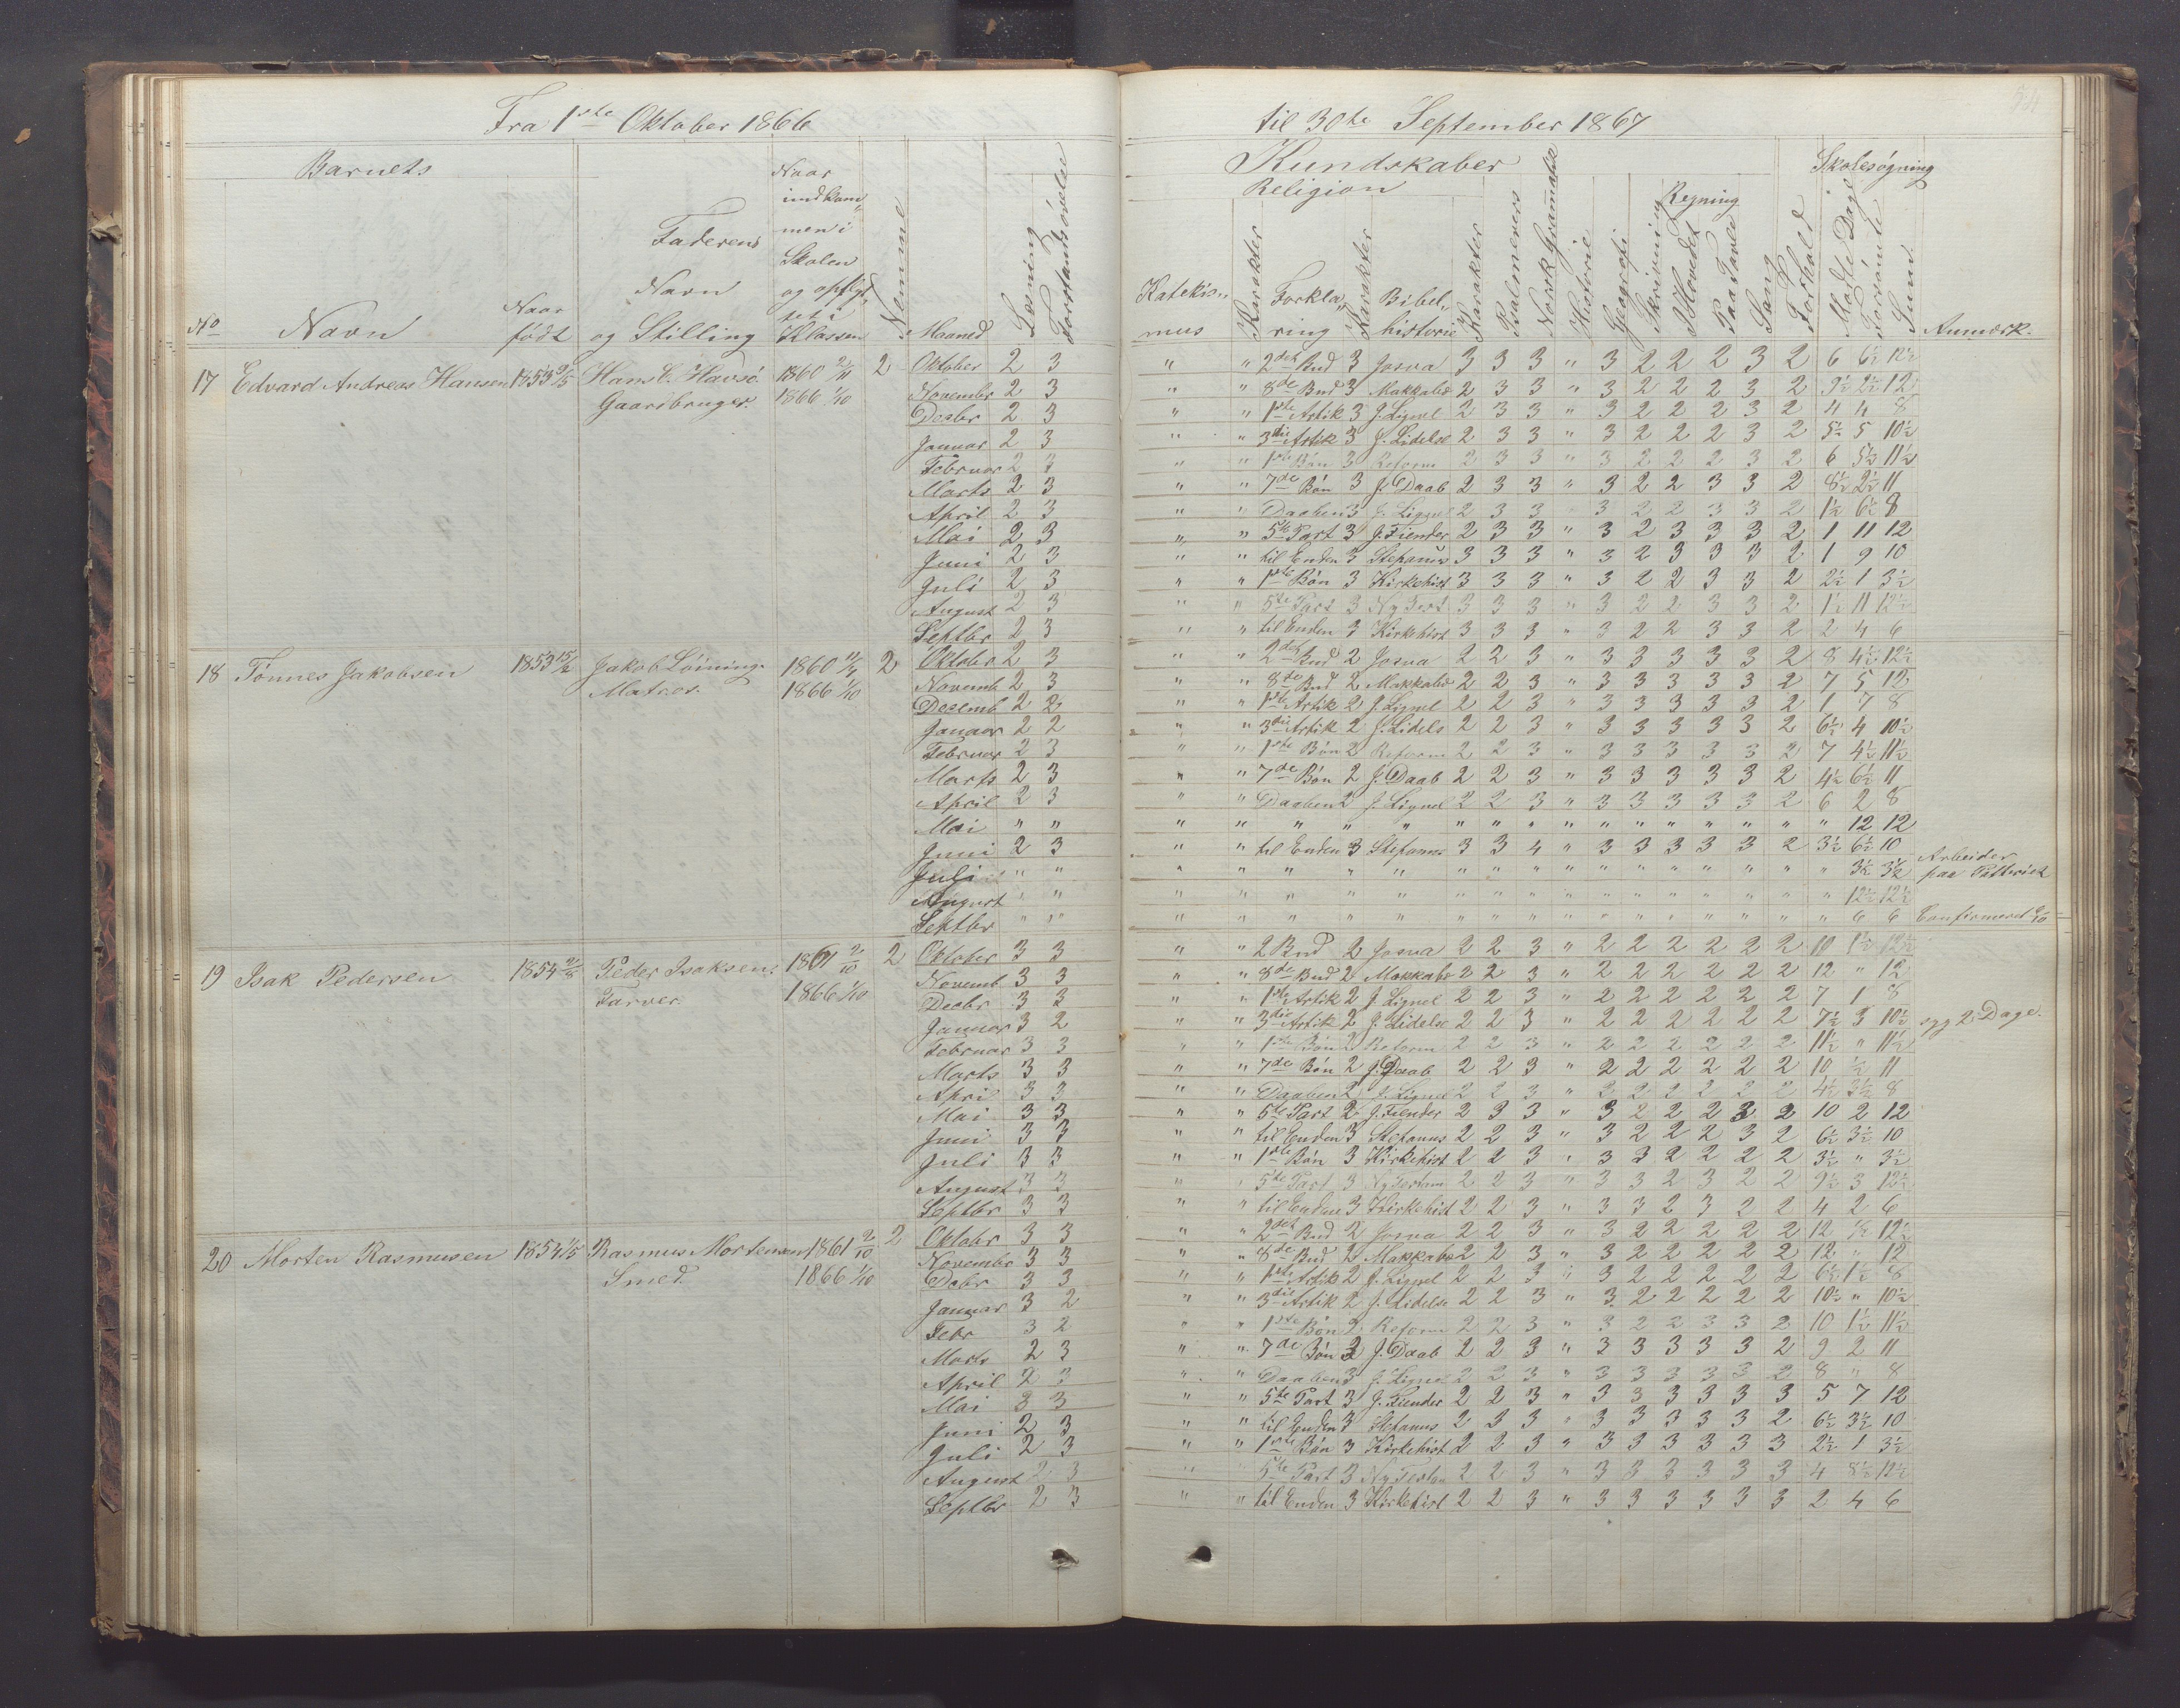 Fra 1ste Oktober 1866 til 30te September 1867
Barnets Kundskaber Skolesøgning
Religion Regning
No Navn Naar født Faderens Navn og Stilling Naar indkommen i Skolen og opflyttet i Klassen Nemme Maaned Læsning Forstandsøvelse Katekismus Karakter Forklaring Karakter Bibelhistorie Karakter Psalmevers Norsk Gramatik Historie Geografi Skrivning I Hovedet Paa Tavle Sang Forhold Mødte Dage Forsømte Sum Anmærk.
17 Edvard Andreas Hansen 1853 9/5 Hans C. Havsø Gaardbruger. 1860 2/11 1866 1/10 2
Oktober 2 3 " " 2det Bud 3 Josva 3 3 3 " 3 2 2 2 3 2 6 6½ 12½
Novembr 2 3 " " 8de Bud 3 Makkabæ 2 3 3 " 3 2 2 2 3 2 9½ 2½ 12
Decbr 2 3 " " 1ste Artik 3 J. Lignel 2 3 3 " 3 2 2 2 3 2 4 4 8
Januar 2 3 " " 3die Artik 3 J. Lidelse 2 3 3 " 3 2 2 2 3 2 5½ 5 10½
Februar 2 3 " " 1ste Bøn 3 Reform 2 3 3 " 3 2 2 2 3 2 6 5½ 11½
Marts 2 3 " " 7de Bøn 3 J. Daab 2 3 3 " 3 2 2 3 3 2 8½ 2½ 11
April 2 3 " " Daaben 3 J. Lignel 2 3 3 " 3 2 2 3 3 2 1½ 6½ 8
Mai 2 3 " " 5te Part 3 J. Fiender 2 3 3 " 3 2 3 3 3 2 1 11 12
Juni 2 3 " " til Enden 3 Stefanus 3 3 3 " 3 2 3 3 3 2 1 9 10
Juli 2 3 " " 1ste Bøn 3 Kirkehist 3 3 3 " 3 2 2 3 3 2 2½ 1 3½
August 2 3 " " 5te Part 3 Ny Test 3 3 3 " 3 2 2 3 3 2 1½ 11 12½
Septbr 2 3 " " til Enden 3 Kirkehist 3 3 3 " 3 2 2 3 3 2 2 4 6
18 Tønnes Jakobsen 1853 Jakob Löining. Matros. 1860 1866 1/10 2
Oktober 2 3 " " 2det Bud 2 Josva 2 2 3 " 3 3 3 3 3 2 8 4½ 12½
Novemb 2 3 " " 8de Bud 2 Makkabæ 2 2 3 " 3 3 3 3 3 2 7 5 12
Decemb 2 2 " " 1ste Artik 2 J. Lignel 2 2 3 " 3 3 3 3 3 2 1 7 8
Januar 2 2 " " 3die Artik 2 J. Lidels 2 2 3 " 3 3 3 3 3 2 6½ 4 10½
Februar 2 3 " " 1ste Bøn 2 Reform 2 2 3 " 3 3 3 3 3 2 7 4½ 11½
Marts 2 3 " " 7de Bøn 2 J. Daab 2 2 3 " 3 3 3 3 3 2 4½ 6½ 11
April 2 3 " " Daaben 2 J. Lignel 2 2 3 " 3 3 3 3 3 2 6 2 8
Mai " " " " " " " " " " " " " " " " " " " 12 12
Juni 2 3 " " til Enden 3 Stefanus 3 3 4 " 3 3 3 3 3 2 3½ 6½ 10
Juli " " " " " " " " " " " " " " " " " " " 3½ 3½ Arbeider paa
August " " " " " " " " " " " " " " " " " " " 12½ 12½
Septbr " " " " " " " " " " " " " " " " " " " 6 6 Confirmeret 6/10
19 Isak Pedersen 1854 2/8 Peder Isaksen Farver. 1861 2/10 1866 1/10 2
Oktober 3 3 " " 2 Bud 2 Josva 2 2 3 " 2 2 2 2 2 2 10 1½ 12½
Novemb 3 3 " " 8de Bud 2 Makkabæ 2 2 3 " 2 2 2 2 2 2 12 " 12
Decbr 3 3 " " 1ste Artik 2 J. Lignel 2 2 3 " 2 2 2 2 2 2 7 1 8
Januar 3 2 " " 3die Artik 2 J. Lidelse 2 2 3 " 2 2 2 2 2 2 7½ 3 10½ syg 2 Dage.
Februar 3 3 " " 1ste Bøn 2 Reform 2 2 3 " 2 2 2 2 2 2 11½ " 11½
Marts 3 3 " " 7de Bøn 2 J. Daab 2 2 3 " 2 2 2 2 2 2 10 ½ 11
April 3 3 " " Daaben 2 J. Lignel 2 2 3 " 3 2 2 2 2 2 4½ 3½ 8
Mai 3 3 " " 5te Part 2 J. Fiender 2 3 3 " 3 2 2 2 3 2 10 2 12
Juni 3 3 " " til Enden 3 Stefanus 2 2 3 " 3 2 2 2 3 2 6½ 3½ 10
Juli 3 3 " " 1ste Bøn 3 Kirkehist 2 2 3 " 3 3 2 2 2 2 3½ " 3½
August 3 3 " " 5te Part 3 Ny Testam 2 2 3 " 3 3 2 3 2 2 9½ 3 12½
Septbr 3 3 " " til Enden 3 Kirkehist 2 2 3 " 3 3 2 3 2 2 4 2 6
20 Morten Rasmusen 1854 1/5 Rasmus Mortensen Smed. 1861 2/10 1866 1/10 2
Oktobr 3 3 " " 2det Bud 2 Josva 2 2 3 " 3 2 2 2 2 2 12 ½ 12½
Novembr 3 3 " " 8de Bud 2 Makkabæ 2 2 3 " 3 2 2 2 2 2 12 " 12
Debr 3 3 " " 1ste Artik 2 J. Lignel 2 2 3 " 3 2 2 2 2 2 6½ 1½ 8
Januar 3 2 " " 3die Artik 2 J. Lidelse 2 2 3 " 3 2 2 2 2 2 10½ " 10½
Febr 3 2 " " 1ste Bøn 2 Reform 2 2 3 " 3 2 2 3 3 2 10 1½ 11½
Marts 2 3 " " 7de Bøn 2 J. Daab 2 2 3 " 3 3 3 3 3 2 9 2 11
April 2 3 " " Daaben 3 J. Lignel 2 2 3 " 3 3 3 3 3 2 8 " 8
Mai 3 3 " " 5te Part 3 J. Fiender 2 2 3 " 3 3 3 3 3 3 5 7 12
Juni 2 3 " " til Enden 3 Stefanus 2 3 3 " 3 3 3 3 3 2 6½ 3½ 10
Juli 2 3 " " 1ste Bøn 3 Kirkehist 2 2 3 " 3 3 3 3 3 3 2½ 1 3½
August 2 3 " " 5te Part 3 Ny Testam 2 2 3 " 3 3 3 3 3 3 4 8½ 12½
Septbr 2 3 " " til Enden 3 Kirkehist 2 2 3 " 3 3 3 3 3 3 2 4 6